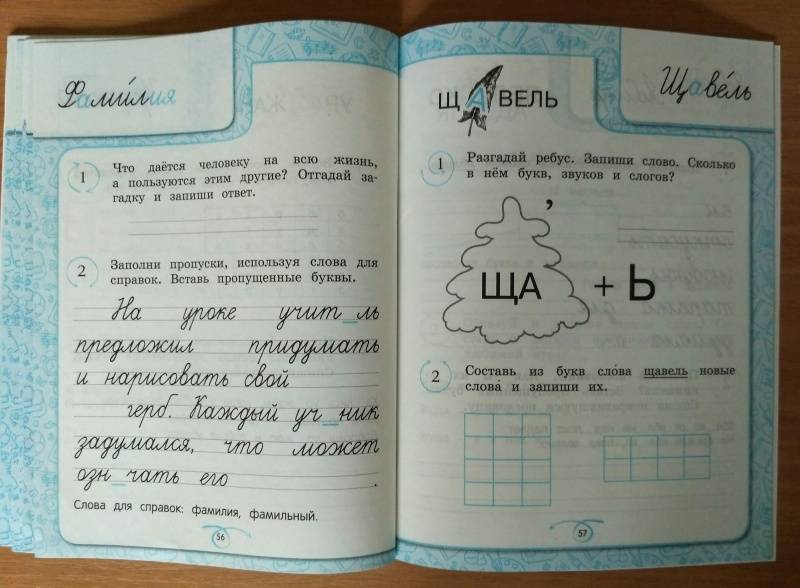 Фамилия
1 Что даётся человеку на всю жизнь,
а пользуются этим другие? Отгадай за-
гадку и запиши ответ.
2 Заполни пропуски, используя слова для
справок. Вставь пропущенные буквы.
На уроке учит_ль
предложил придумать
и нарисовать свой
герб. Каждый уч_ник
задумался, что может
озн_чать его .
Слова для справок: фамилия, фамильный.
56
ЩАВЕЛЬ
Щаве́ль
1 Разгадай ребус. Запиши слово. Сколько
в нём букв, звуков и слогов?
,
ЩА + Ь
2 Составь из букв сло́ва щавель новые
слова́ и запиши их.
57